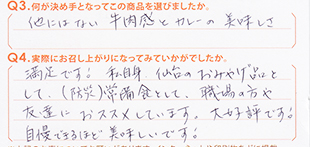 Q3.何が決め手となってこの商品を選びましたか。
他にはない牛肉感とカレーの美味しさ
Q4.実際にお召し上がりになってみていかがでしたか。
満足です! 私自身、仙台のおみやげ品と
して、(防災)常備食として、職場の方や
友達におススメしています。大好評です!
自慢できるほど美味しいです!